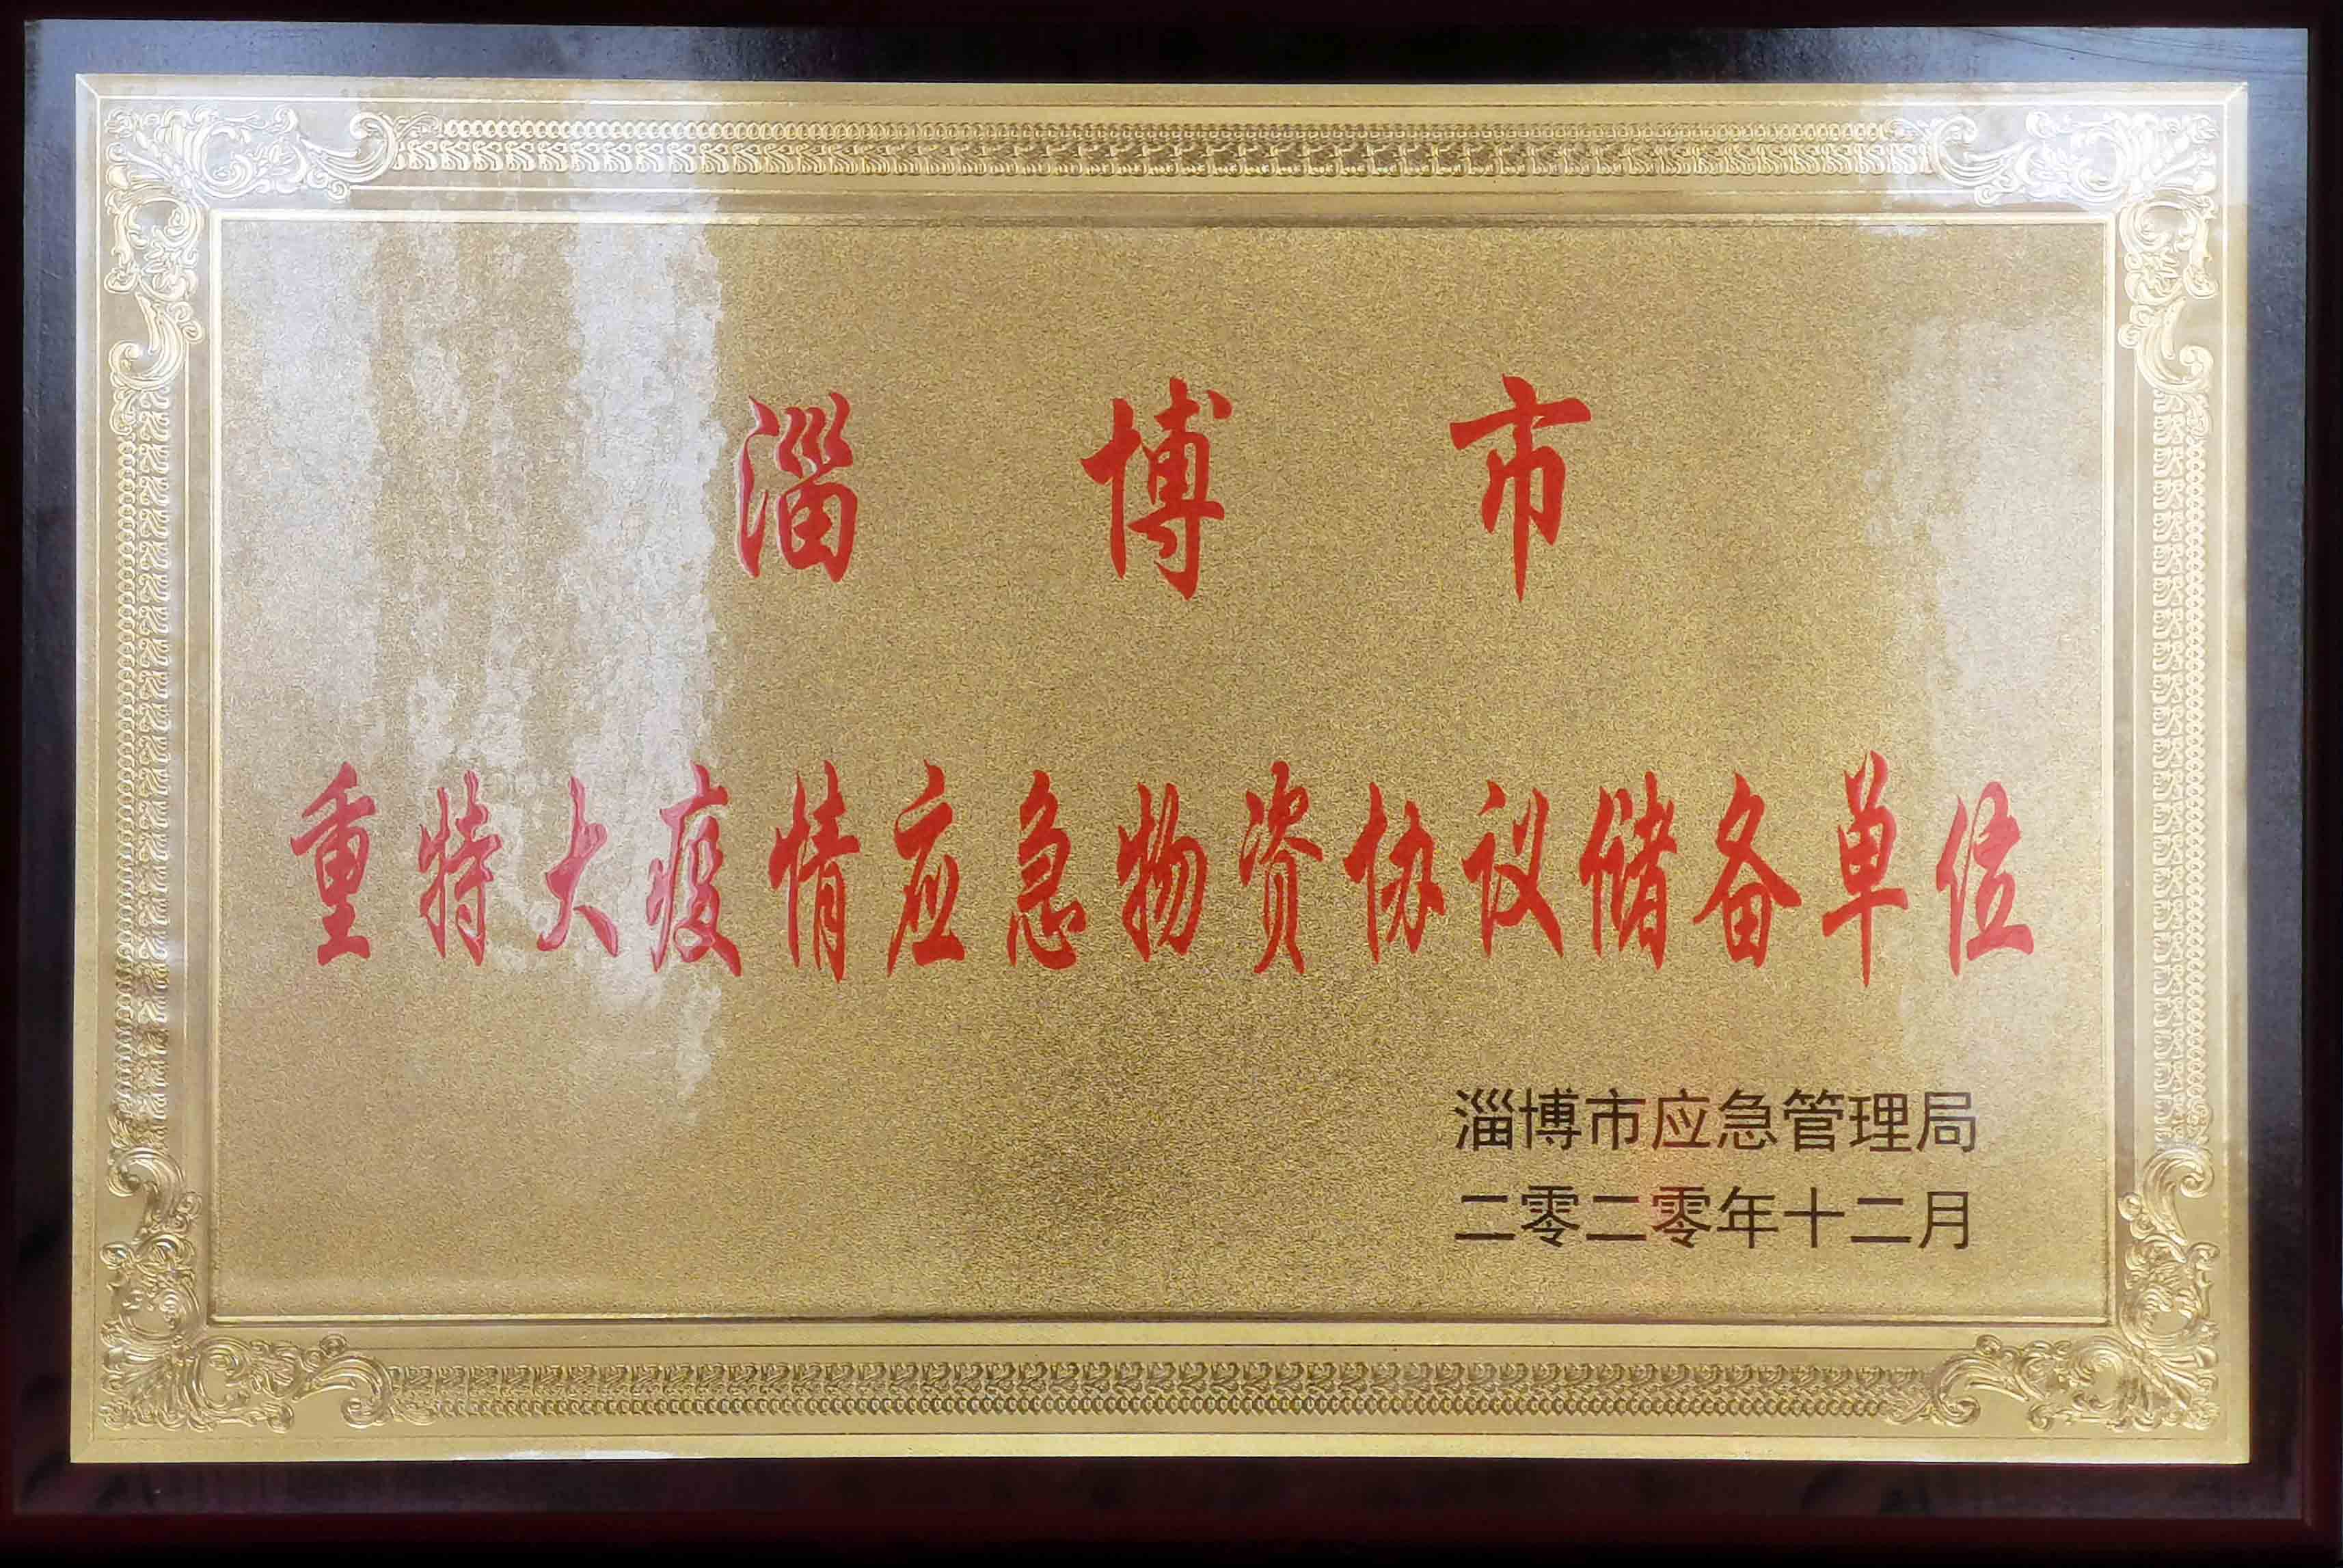 淄博市
重特大疫情应急物资协议储备单位
淄博市应急管理局
二零二零年十二月